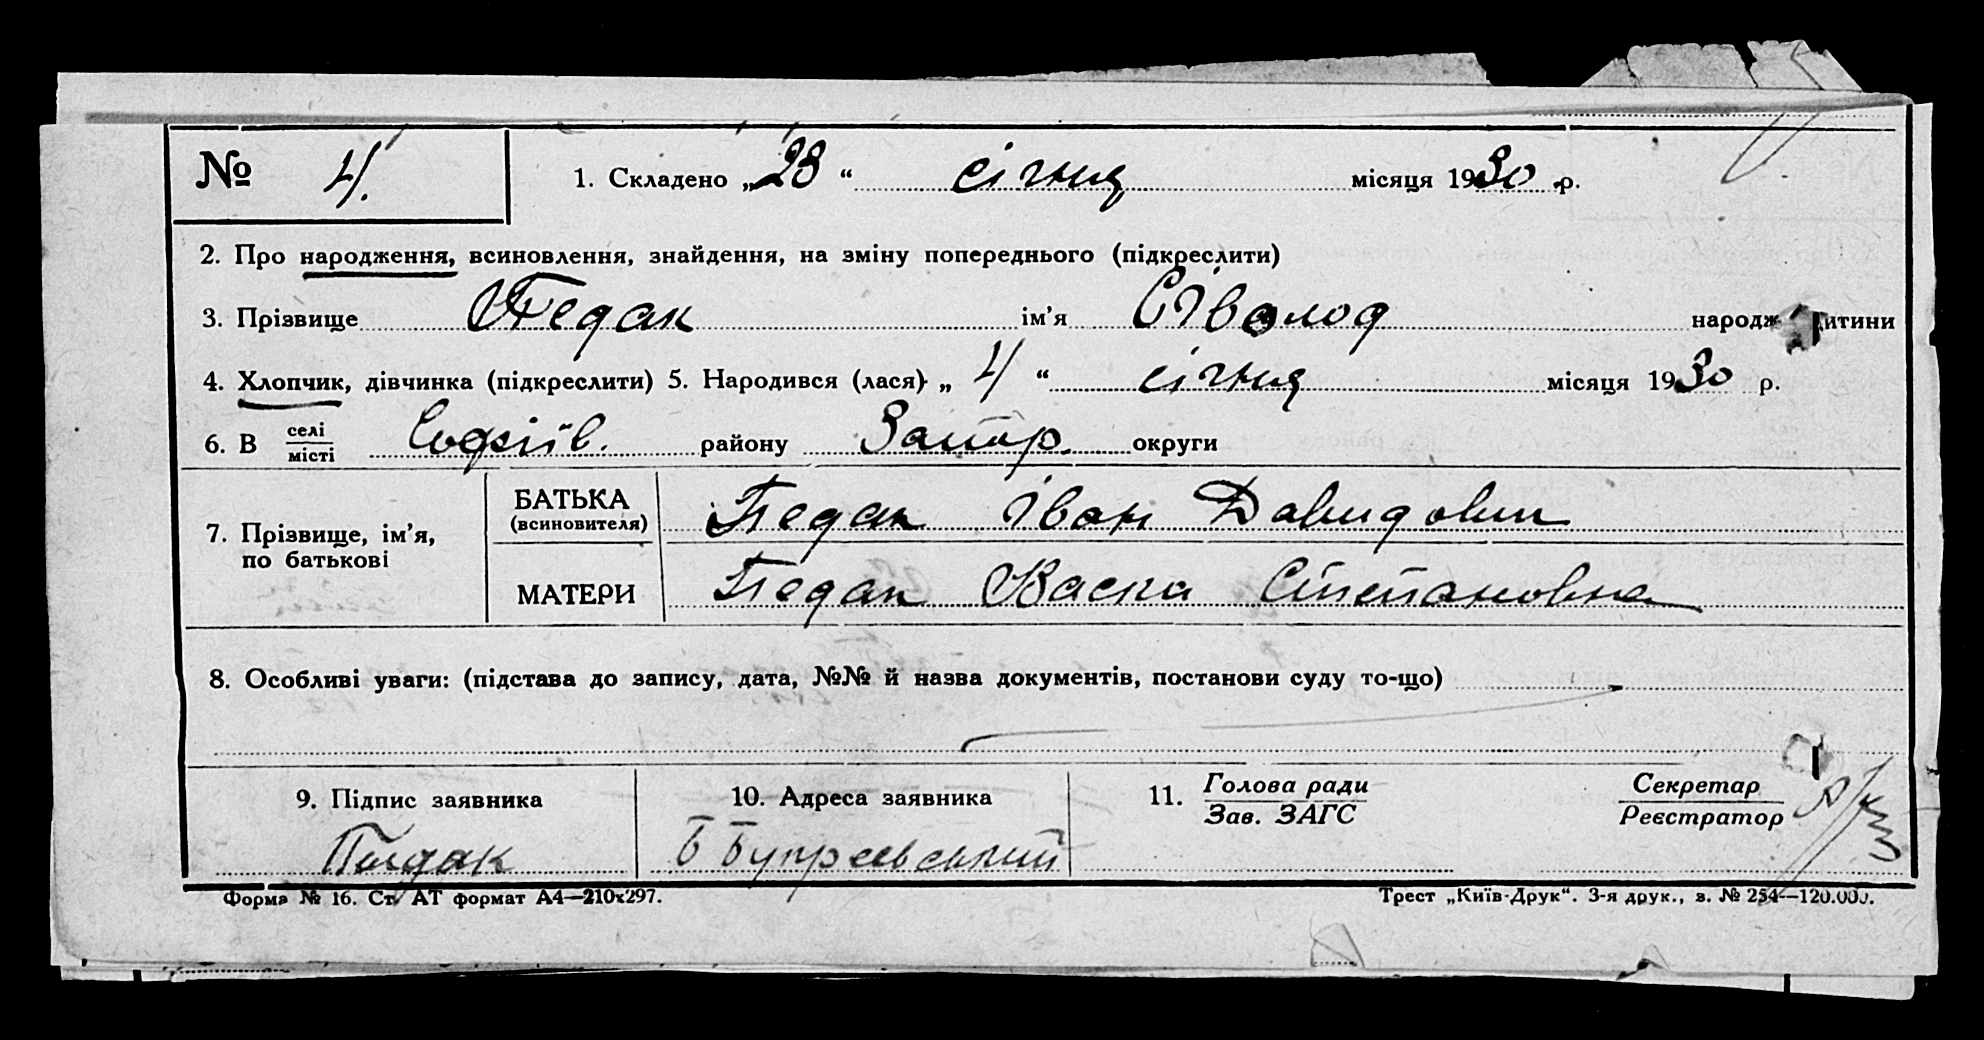 № 4. 1. Складено „23“ січня місяця 1930 р.
2. Про народження, всиновлення, знайдення, на зміну попереднього (підкреслити)
3. Прізвище Педак ім’я Сіволод народж итини
4. Хлопчик, дівчинка (підкреслити) 5. Народився (лася) „4“ січня місяця 1930 р.
6. В селі місті Софіїв. району Запор. округи
7. Прізвище, ім’я, по батькові
БАТЬКА (всиновителя) Педак Іван Давидович
МАТЕРИ Педак Васка Степановна
8. Особливі уваги: (підстава до запису, дата, №№ й назва документів, постанови суду то-що)
9. Підпис заявника 10. Адреса заявника 11. Голова ради Секретар
Зав. ЗАГС Реєстратор
Педак
Форма № 16. Ст. АТ формат А4—210х297. Трест „Київ-Друк“. 3-я друк., з. № 254—120.000.